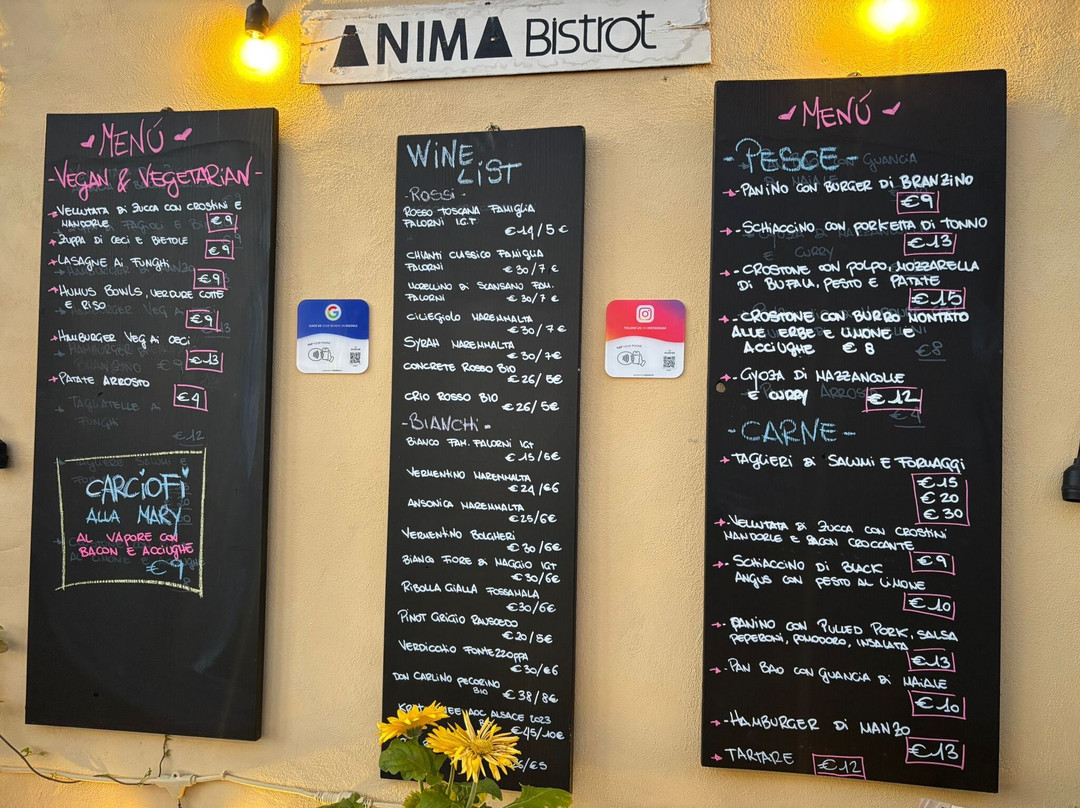 ANIMA Bistrot
MENÚ
- VEGAN & VEGETARIAN -
VELLUTATA DI ZUCCA CON CROSTINI E
MANDORLE €9
ZUPPA DI CECI E BIETOLE
€9
LASAGNE AI FUNGHI
€9
HUMUS BOWLS, VERDURE COTTE
E RISO
€9
HAMBURGER VEG AI CECI
€13
PATATE ARROSTO
€4
TAGLIATELLE AI
FUNGHI
€12
CARCIOFI
ALLA MARY
AL VAPORE CON
BACON E ACCIUGHE
€9
WINE
LIST
- ROSSI -
ROSSO TOSCANA FAMIGLIA
FALORNI I.G.T
€14/5€
CHIANTI CLASSICO FAMIGLIA
FALORNI €30/7€
MORELLINO DI SCANSANO FAM.
FALORNI €30/7€
CILIEGIOLO MAREMMALTA
€30/7€
SYRAH MAREMMALTA
€30/7€
CONCRETE ROSSO BIO
€26/5€
CRIO ROSSO BIO
€26/5€
- BIANCHI -
BIANCO FAM. FALORNI IGT
€15/5€
VERMENTINO MAREMMALTA
€24/€6
ANSONICA MAREMMALTA
€25/6€
VERMENTINO BOLGHERI
€30/6€
BIANCO FIORE DI MAGGIO IGT
€30/6€
RIBOLLA GIALLA FOSSAMALA
€30/6€
PINOT GRIGIO RAUSCEDO
€20/5€
VERDICCHIO FONTEZZOPPA
€30/€6
DON CARLINO PECORINO
BIO €38/8€
AOC ALSACE 2023
€45/10€
€5
MENÚ
- PESCE -
PANINO CON BURGER DI BRANZINO
€9
SCHIACCINO CON PORKETTA DI TONNO
€13
CROSTONE CON POLPO, MOZZARELLA
DI BUFALA, PESTO E PATATE
€15
CROSTONE CON BURRO MONTATO
ALLE ERBE E LIMONE E
ACCIUGHE €8
€8
GYOZA DI MAZZANCOLLE
E CURRY €12
€4
- CARNE -
TAGLIERI DI SALUMI E FORMAGGI
€15
€20
€30
VELLUTATA DI ZUCCA CON CROSTINI
MANDORLE E BACON CROCCANTE
€9
SCHIACCINO DI BLACK
ANGUS CON PESTO AL LIMONE
€10
PANINO CON PULLED PORK, SALSA
PEPERONI, POMODORO, INSALATA
€13
PAN BAO CON GUANCIA DI MAIALE
€10
HAMBURGER DI MANZO
€13
TARTARE €12